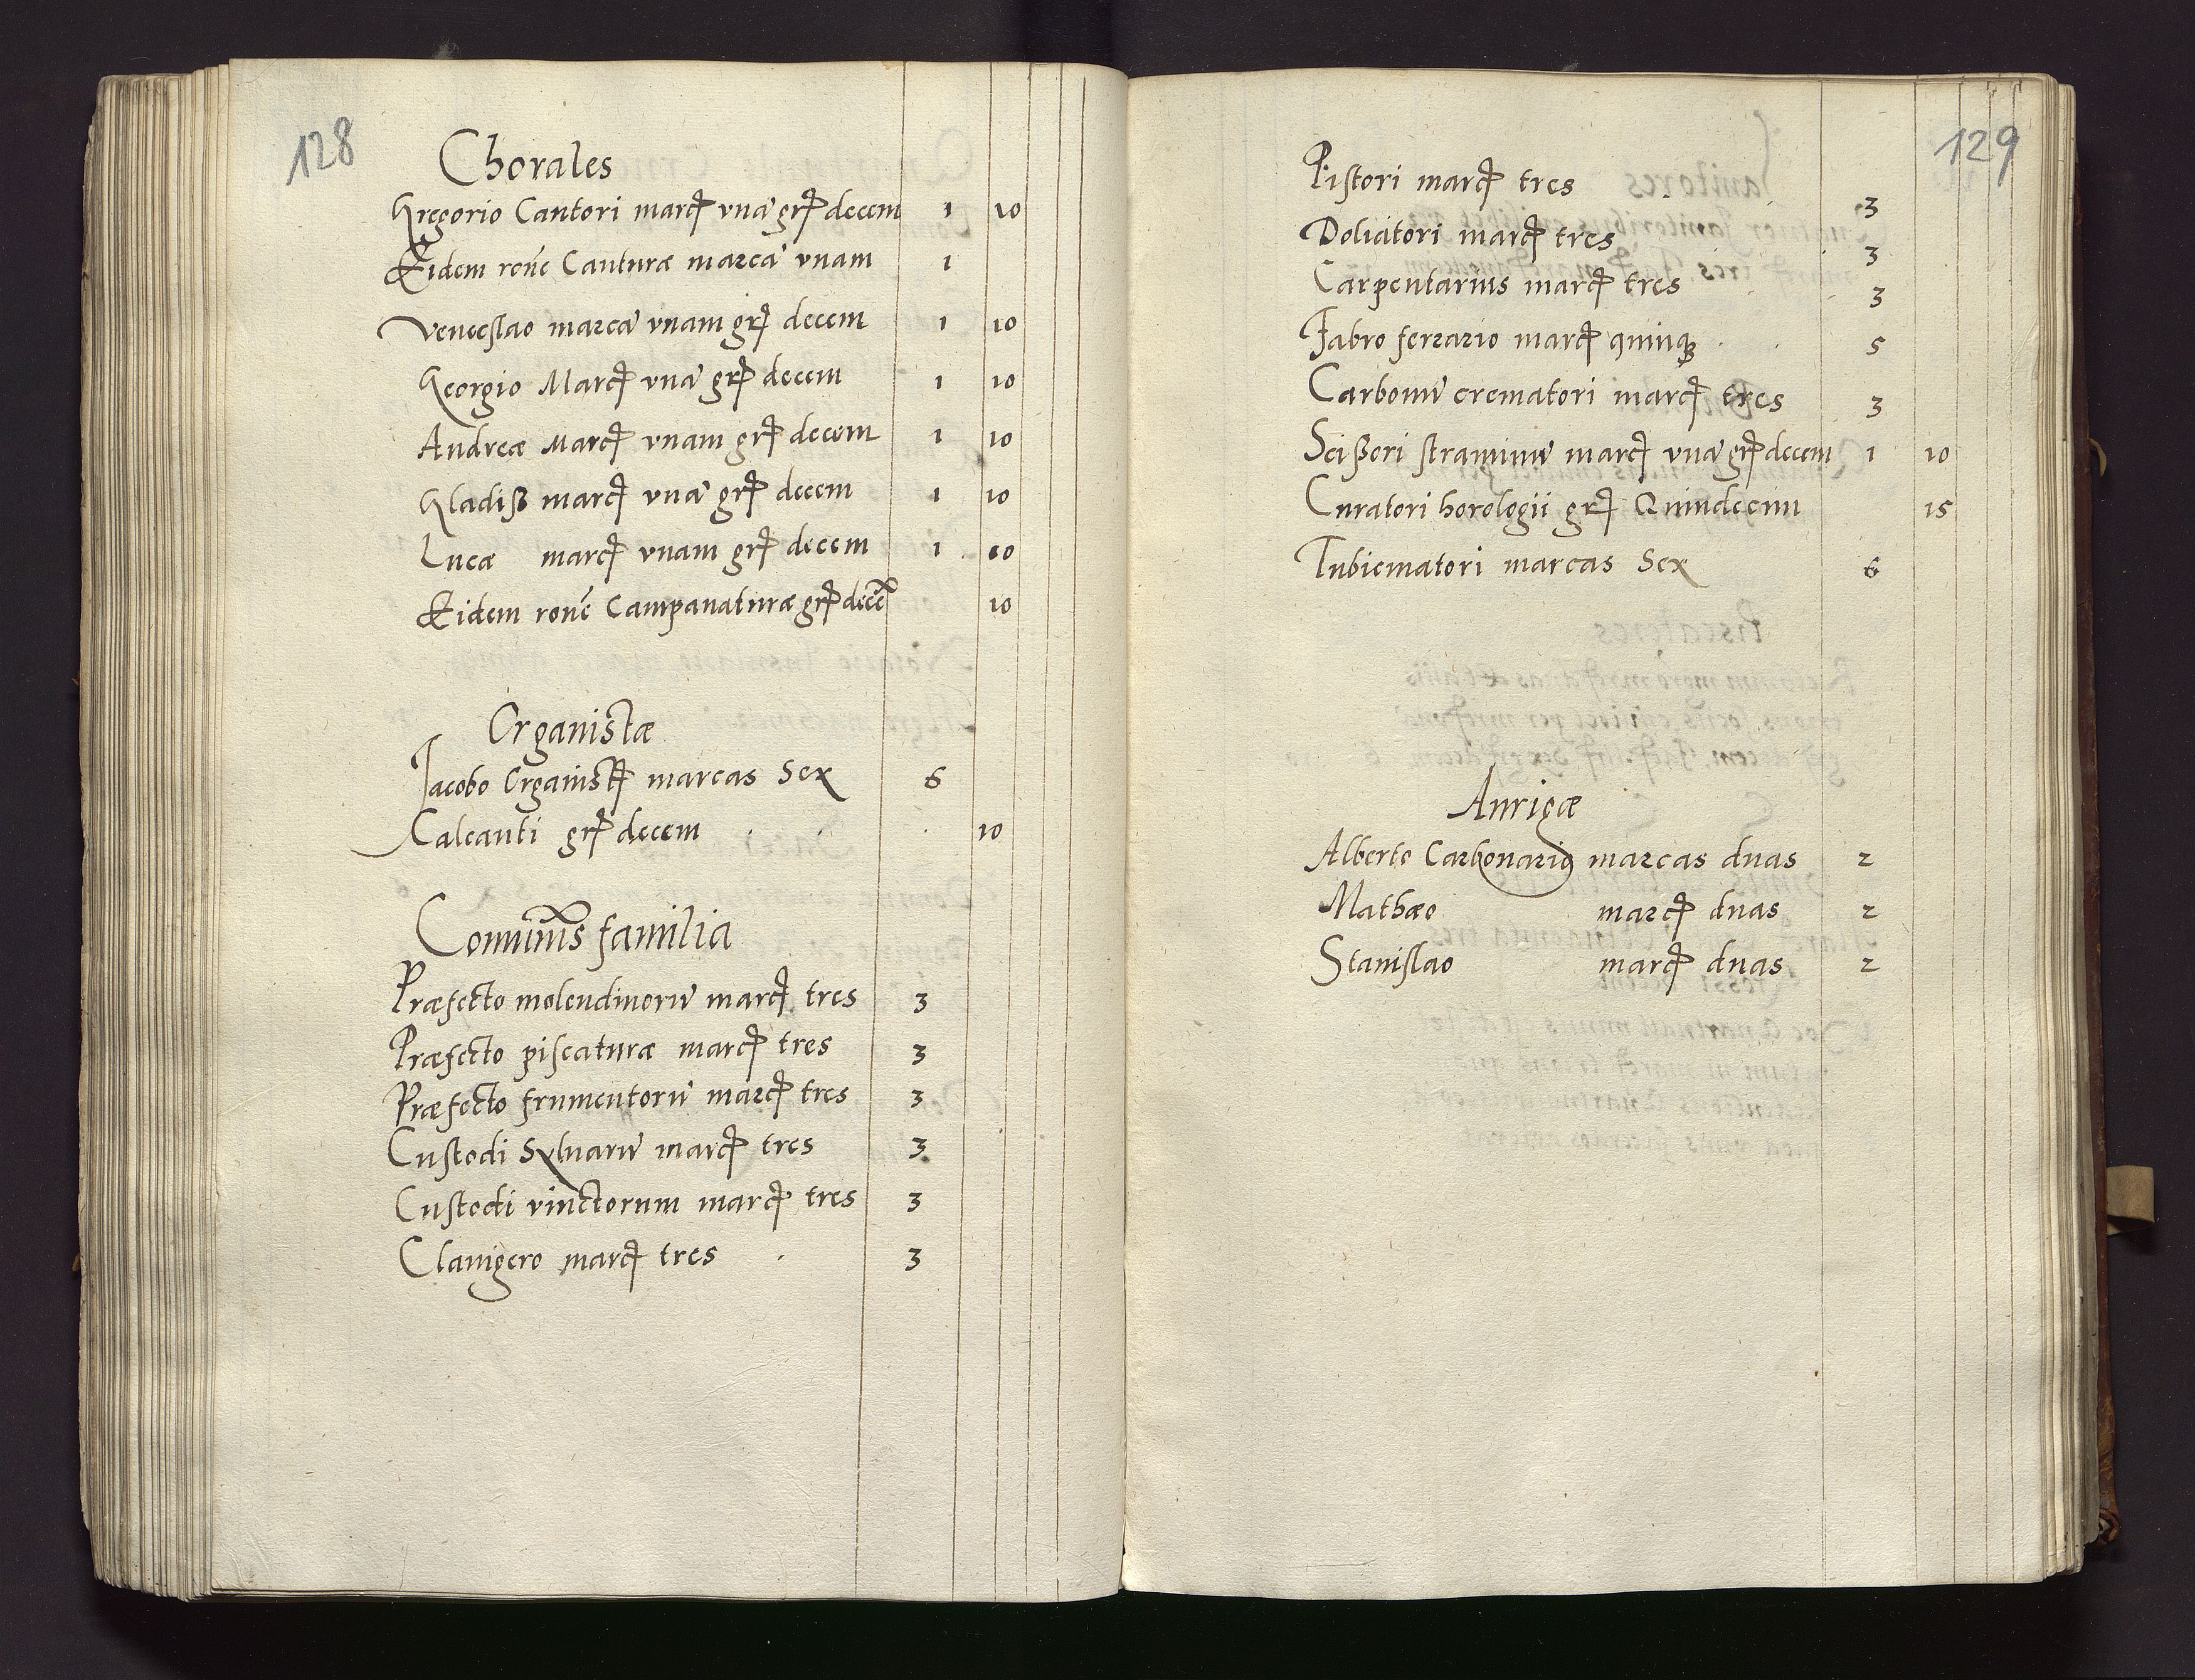 128
Chorales
Gregorio Cantori marcꝭ vnā grꝭ decem 1 10
Eidem rōne Canturæ marcā vnam 1
Venceslao marcā vnam grꝭ decem 1 10
Georgio Marcꝭ vnā grꝭ decem 1 10
Andreæ Marcꝭ vnam grꝭ decem 1 10
Gladiß marcꝭ vnā grꝭ decem 1 10
Lucæ marcꝭ vnam grꝭ decem 1 10
Eidem rōne Campanaturæ grꝭ decē 10
Organistæ
Jacobo Organistꝭ marcas Sex 6
Calcanti grꝭ decem 10
Comunis familia
Præfecto molendinorū marcꝭ tres 3
Præfecto piscaturæ marcꝭ tres 3
Præfecto frumentorū marcꝭ tres 3
Custodi Syluarū marcꝭ tres 3
Custodi vinctorum marcꝭ tres 3
Clauigero marcꝭ tres 3
129
Pistori marcꝭ tres 3
Doliatori marcꝭ tres 3
Carpentarius marcꝭ tres 3
Fabro ferrario marcꝭ quinqꝫ 5
Carbonū crematori marcꝭ tres 3
Scißori straminū marcꝭ vnā grꝭ decem 1 10
Curatori horologii grꝭ Quindecim 15
Tubicinatori marcas Sex 6
Aurigæ
Alberto Carbonario marcas duas 2
Mathæo marcꝭ duas 2
Stanislao marcꝭ duas 2